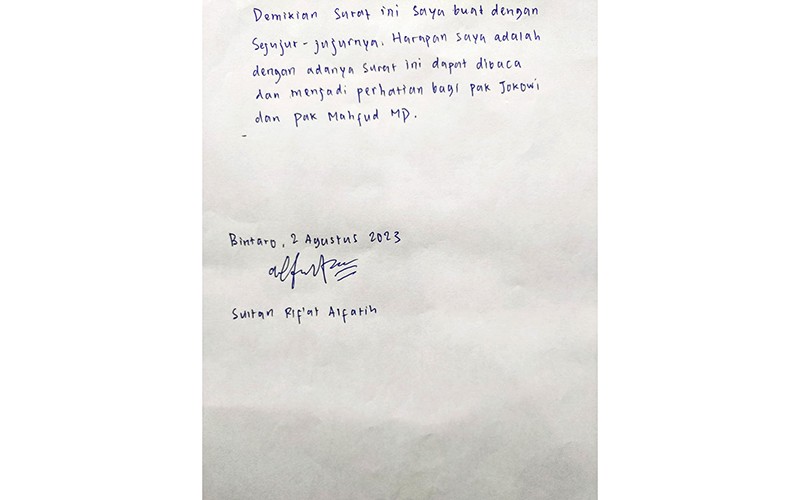 Demikian Surat ini saya buat dengan
Sejujur-jujurnya. Harapan saya adalah
dengan adanya surat ini dapat dibaca
dan menjadi perhatian bagi pak Jokowi
dan pak Mahfud MD.
-
Bintaro, 2 Agustus 2023
Sultan Rif'at Alfatih